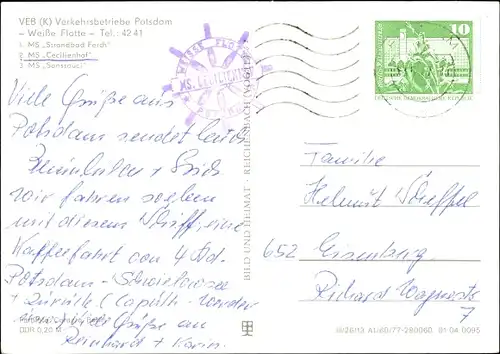 VEB (K) Verkehrsbetriebe Potsdam
– Weiße Flotte – Tel.: 42 41
1. MS „Strandbad Ferch"
2. MS „Cecilienhof"
3. MS „Sanssouci"
WEISSE FLOTTE
MS. CECILIENHOF
10
DEUTSCHE DEMOKRATISCHE REPUBLIK
Viele Grüße aus
Potsdam sendet Euch
wir fahren soeben
mit diesem Schiff, eine
Kafferfahrt von 4 Std.
Potsdam – Schwielowsee
+ zurück (Caputh –
Viele Grüße an
Reinhard + Karin.
DDR 0,20 M
BILD UND HEIMAT · REICHENBACH (VOGTL)
Familie
Helmut
652 Eisenberg
Richard Wagnerstr.
7
III/26/13 A1/60/77-280060 01 04 0095